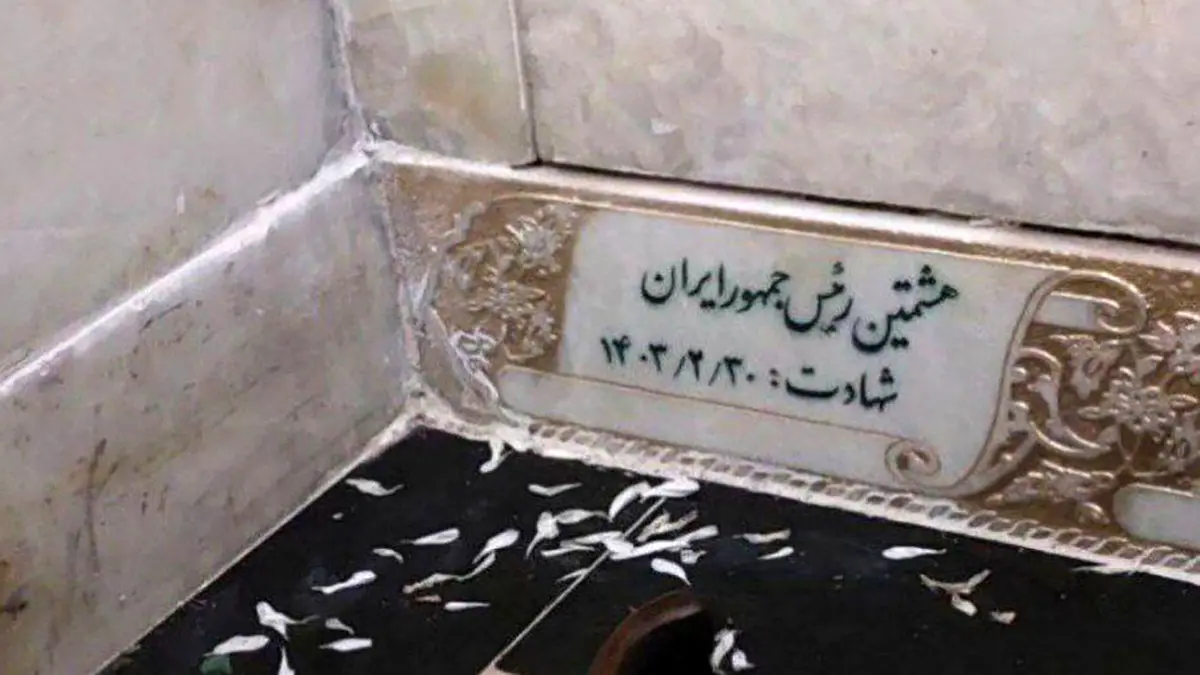 هشتمین رئیس جمهور ایران
شهادت: ۱۴۰۳/۲/۳۰